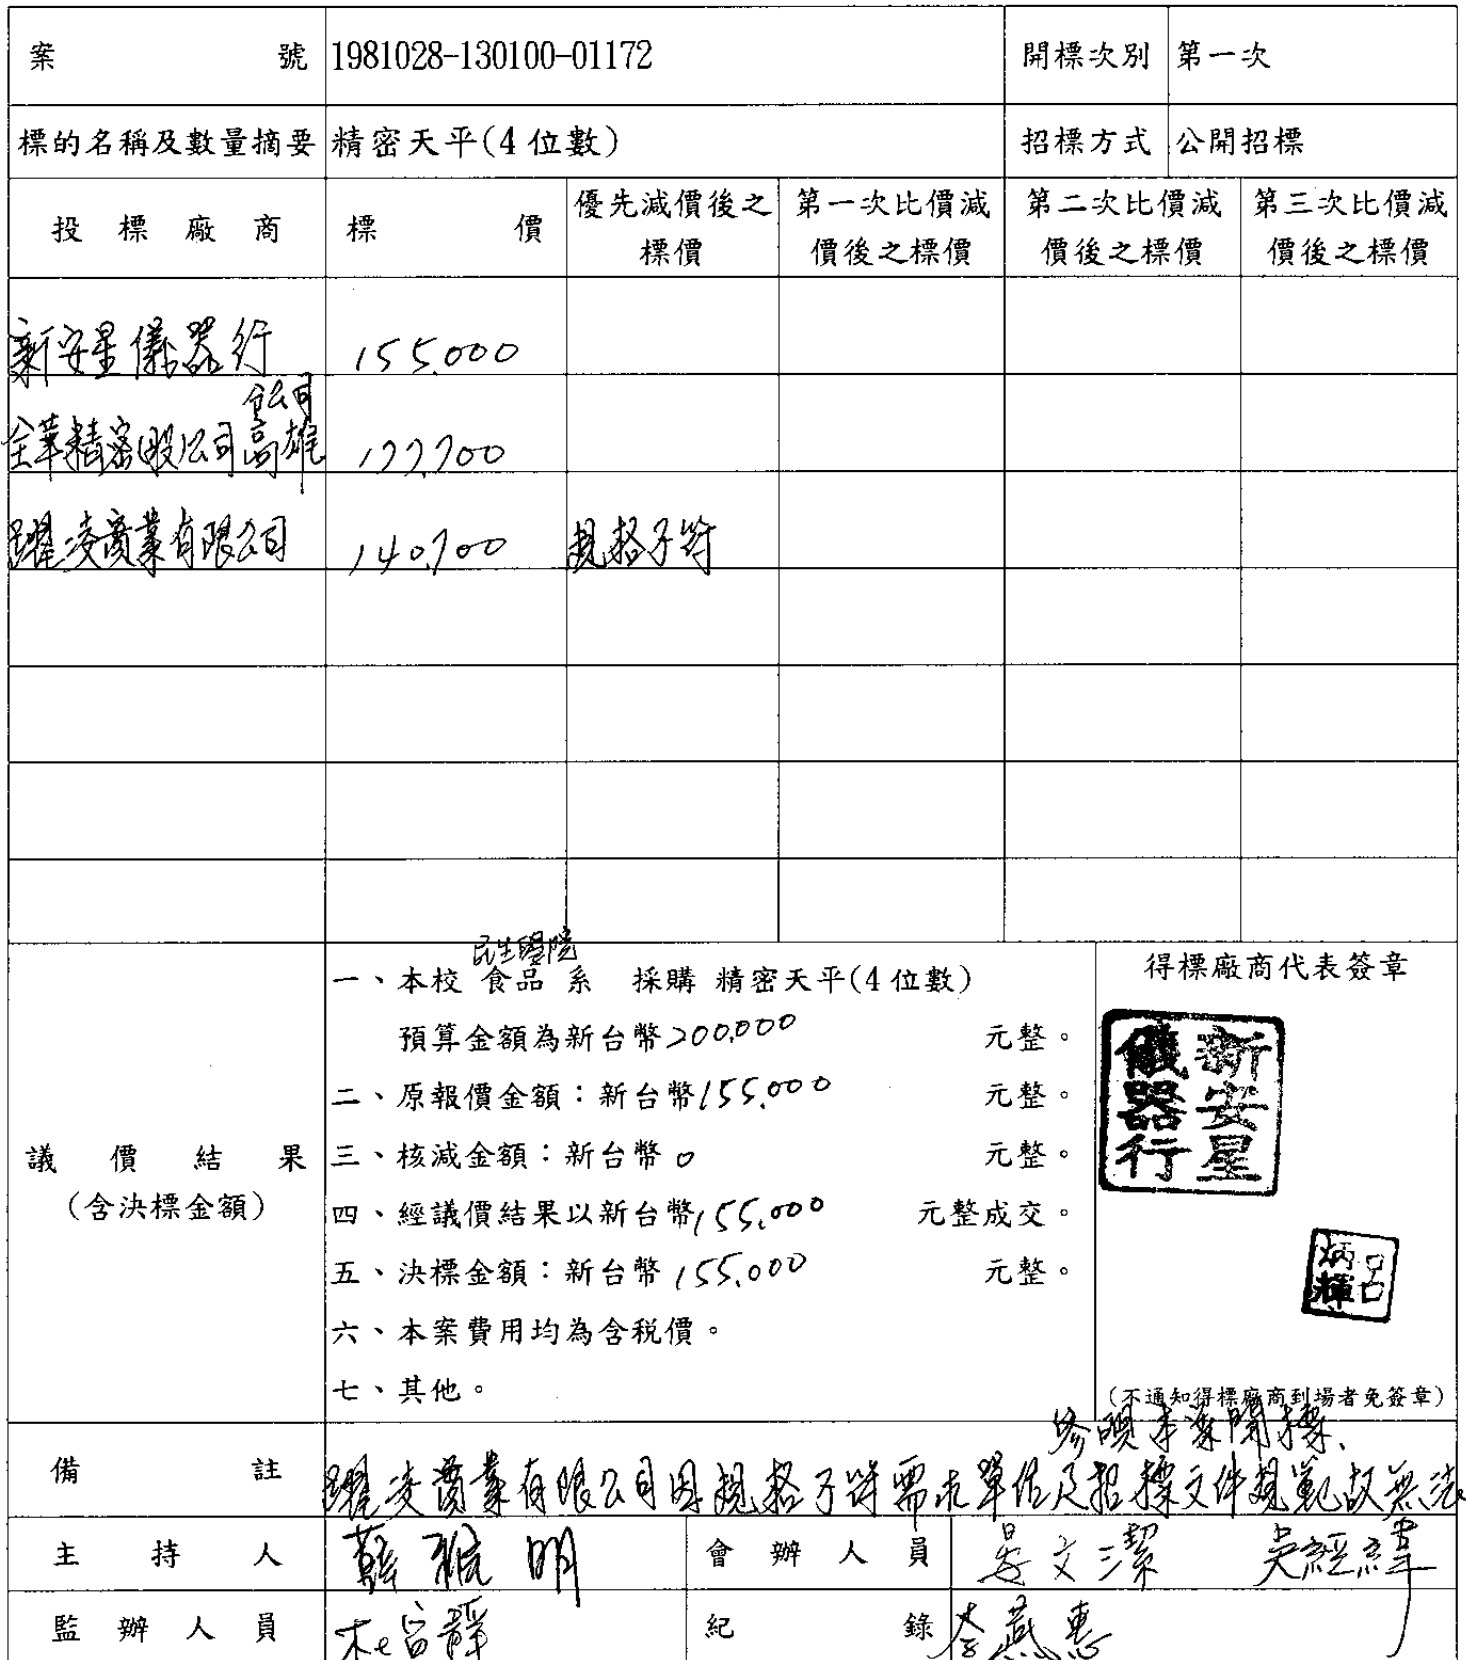 案 號 1981028-130100-01172 開標次別 第一次
標的名稱及數量摘要 精密天平(4位數) 招標方式 公開招標
投標廠商 標價 優先減價後之標價 第一次比價減價後之標價 第二次比價減價後之標價 第三次比價減價後之標價
新安星儀器行 155,000
全華精密(股)公司高雄
140,700 規格不符
民生醫院
一、本校 食品 系 採購 精密天平(4位數)
預算金額為新台幣200,000 元整。
二、原報價金額：新台幣155,000 元整。
議價結果 三、核減金額：新台幣 0 元整。
(含決標金額) 四、經議價結果以新台幣155,000 元整成交。
五、決標金額：新台幣 155,000 元整。
六、本案費用均為含稅價。
七、其他。
得標廠商代表簽章
新安星
儀器行
呂
炳輝
(不通知得標廠商到場者免簽章)
本案開標、
備註 有限公司因規格不符需求單位及招標文件規範故無法
主持人 明 會辦人員 文潔 吳經緯
監辦人員 紀錄 李燕惠